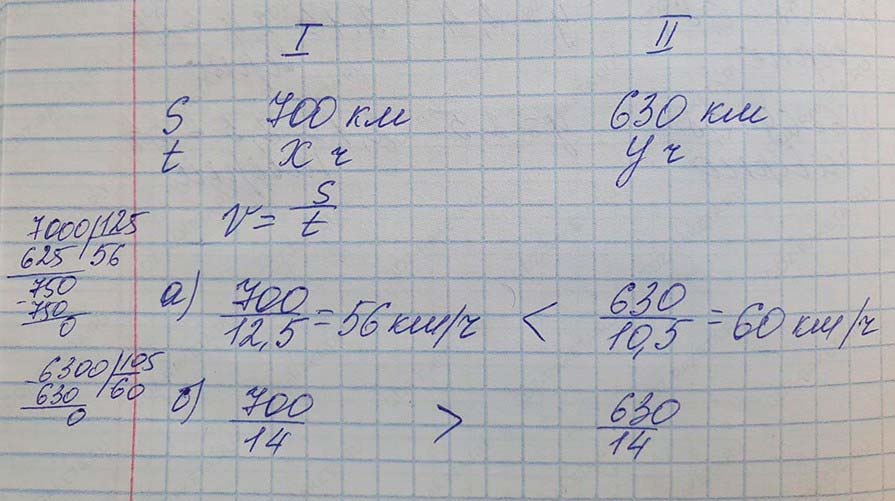 I II
S 700 км 630 км
t x ч y ч
v = S/t
7000 | 125
625 | 56
-750
750
0
а) 700/12,5 = 56 км/ч < 630/10,5 = 60 км/ч
-6300 | 105
630 | 60
0
б) 700/14 > 630/14